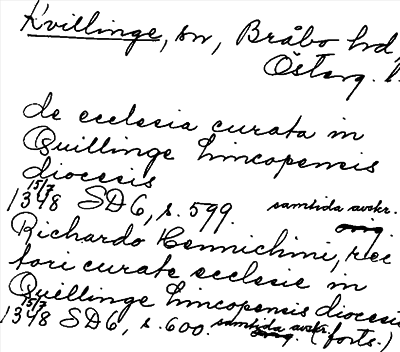 Kvillinge, sn, Bråbo hrd,
Österg.
de ecclesia curata in
Quillinge Lincopensis
diocesis
15/7
1348 SD6, s. 599. samtida avskr.
Richardo Hennichini, rec
tori curate ecclesie in
Quillinge Lincopensis diocesis
15/7
1348 SD6, s. 600. samtida avskr. (forts.)